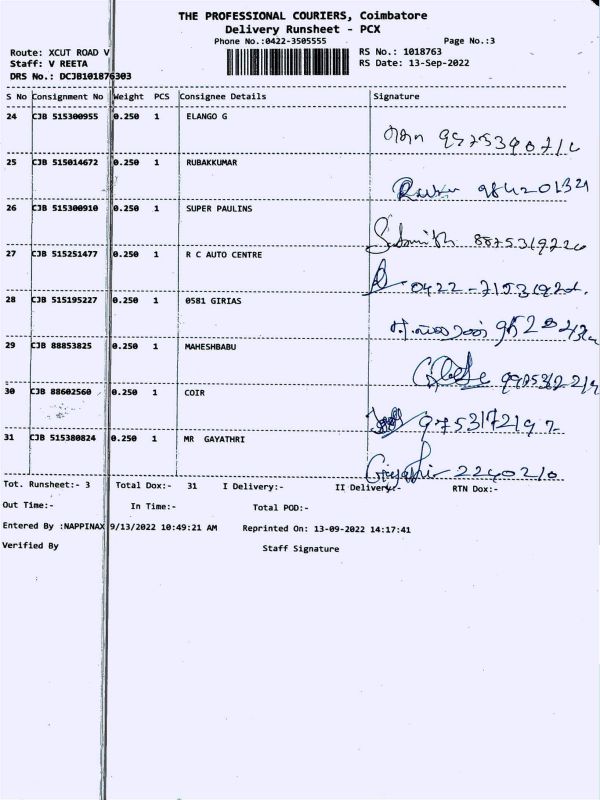 THE PROFESSIONAL COURIERS, Coimbatore
Delivery Runsheet - PCX
Phone No.:0422-3505555 Page No.:3
Route: XCUT ROAD V RS No.: 1018763
Staff: V REETA RS Date: 13-Sep-2022
DRS No.: DCJB101876303
S No Consignment No Weight PCS Consignee Details Signature
24 CJB 515300955 0.250 1 ELANGO G
25 CJB 515014672 0.250 1 RUBAKKUMAR
26 CJB 515300910 0.250 1 SUPER PAULINS
27 CJB 515251477 0.250 1 R C AUTO CENTRE
28 CJB 515195227 0.250 1 0581 GIRIAS
29 CJB 88853825 0.250 1 MAHESHBABU
30 CJB 88602560 0.250 1 COIR
31 CJB 515380824 0.250 1 MR GAYATHRI
Tot. Runsheet:- 3 Total Dox:- 31 I Delivery:- II Delivery:- RTN Dox:-
Out Time:- In Time:- Total POD:-
Entered By :NAPPINAX 9/13/2022 10:49:21 AM Reprinted On: 13-09-2022 14:17:41
Verified By Staff Signature